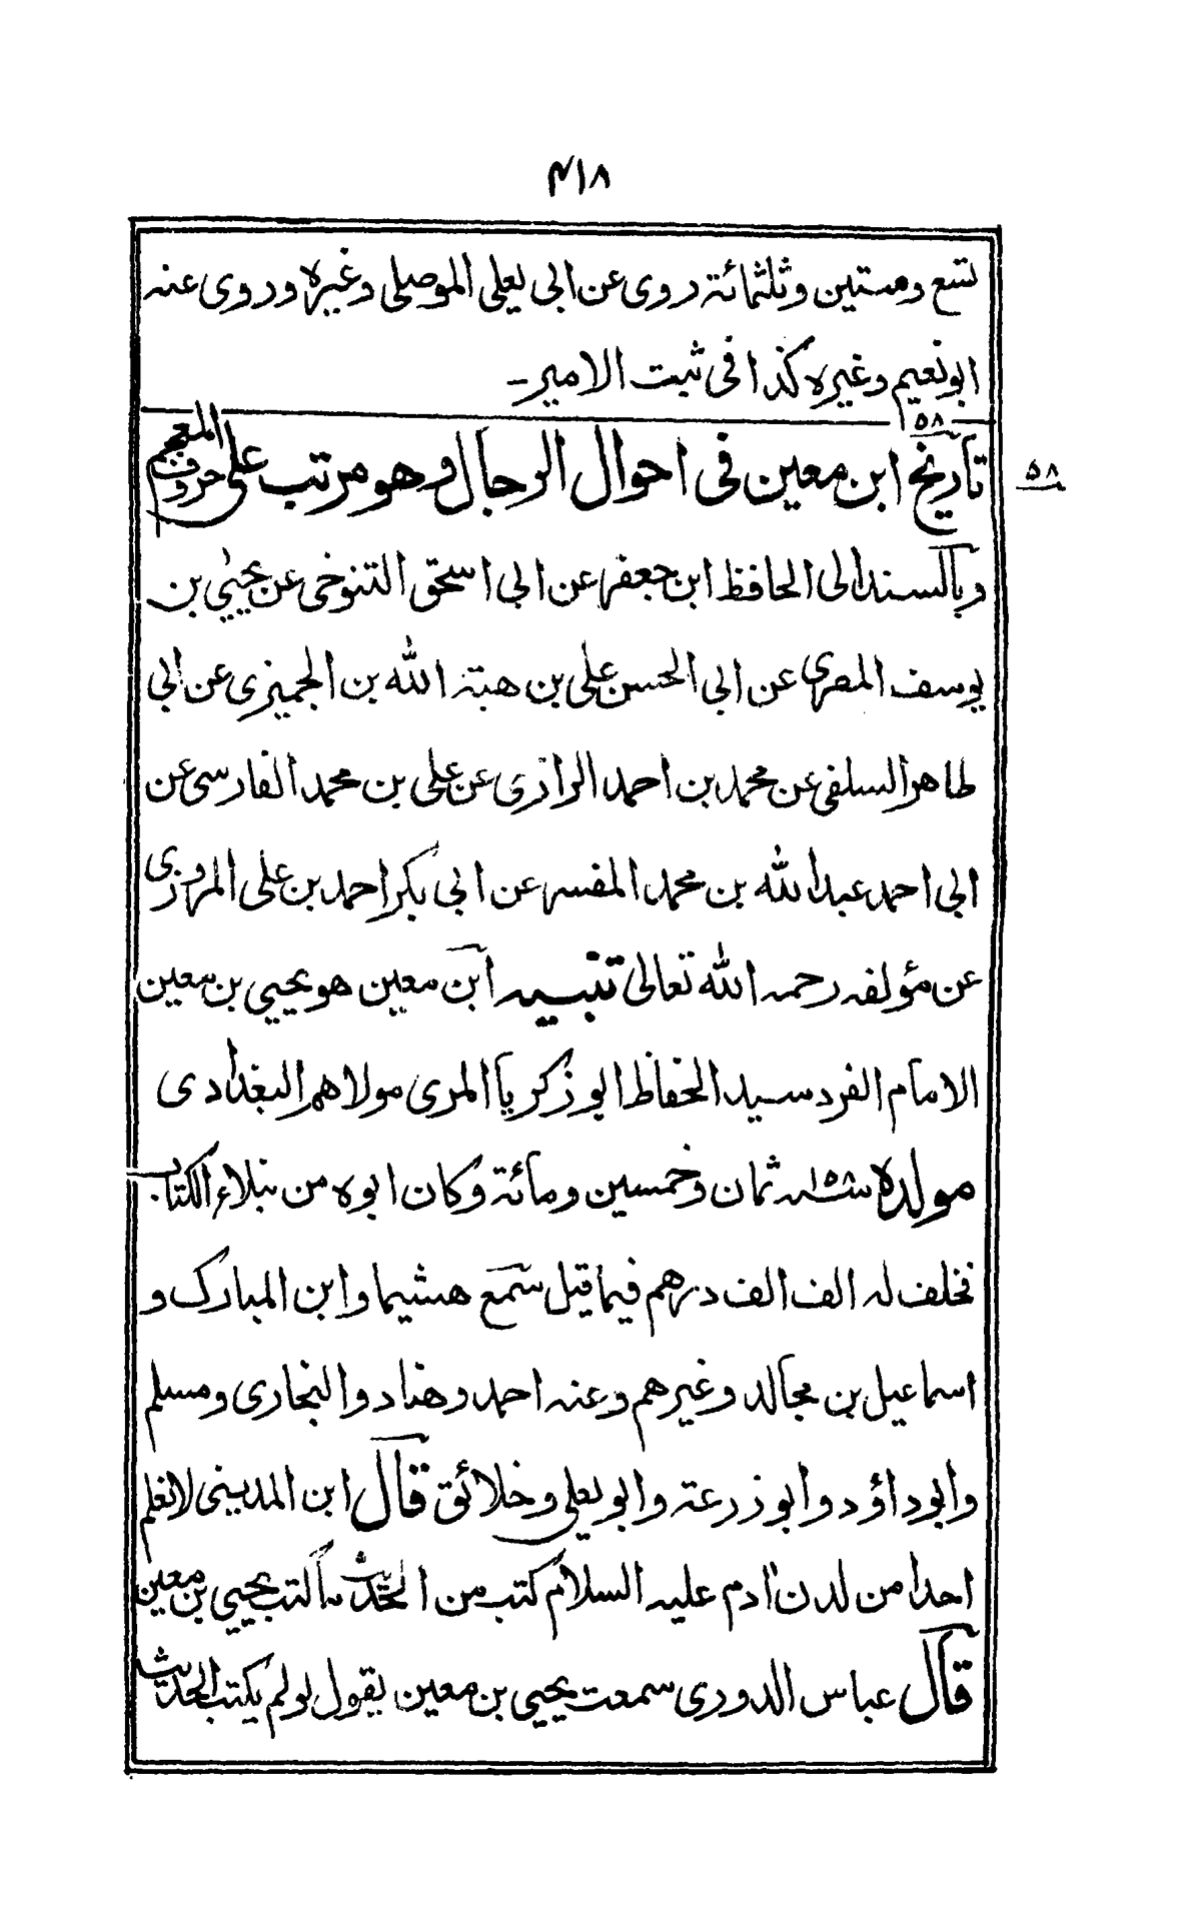 ٤١٨
تسع وستين وثلثمائة روى عن ابي يعلى الموصلى وغيره وروى عنه
ابو نعيم وغيره كذا فى ثبت الامير۔
٥٨
٥٨
تاريخ ابن معين فى احوال الرجال وهو مرتب على حروف المعجم
وبالسند الى الحافظ ابن جعفر عن ابي اسحق التنوخى عن يحيىٰ بن
يوسف المصرى عن ابي الحسن على بن هبة الله بن الجميزى عن ابي
طاهر السلفى عن محمد بن احمد الرازى عن على بن محمد الفارسى عن
ابي احمد عبد الله بن محمد المفسر عن ابي بكر احمد بن على المروزى
عن مؤلفه رحمه الله تعالى تنبيه ابن معين هو يحيي بن معين
الامام الفرد سيد الحفاظ ابو زكريا المرى مولاهم البغدادى
مولده سنه ١٥٨ ثمان وخمسين ومائة وكان ابوه من نبلاء الكتاب
فخلف له الف الف درهم فيما قيل سمع هشيما وابن المبارك و
اسماعيل بن مجالد وغيرهم وعنه احمد وهناد والبخارى ومسلم
وابو داؤد وابو زرعة وابو يعلى وخلائق قال ابن المدينى لا نعلم
احدا من لدن ادم عليه السلام كتب من الحديث ما كتب يحيي بن معين
قال عباس الدورى سمعت يحيي بن معين يقول لو لم يكتب الحديث